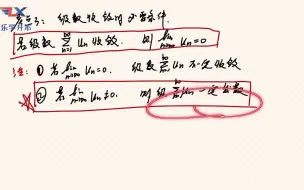 乐学升本
考点3：级数收敛的必要条件.
若级数 ∑_{n=1}^{∞} Un 收敛. 则 lim_{n→∞} Un=0
注：① 若 lim_{n→∞} Un=0. 级数 ∑_{n=1}^{∞} Un 不一定收敛
② 若 lim_{n→∞} Un≠0. 则级 Un 一定发散